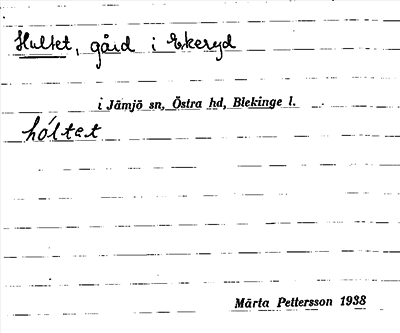 Hultet, gård i Ekeryd
i Jämjö sn, Östra hd, Blekinge l.
hóltet
Märta Pettersson 1938